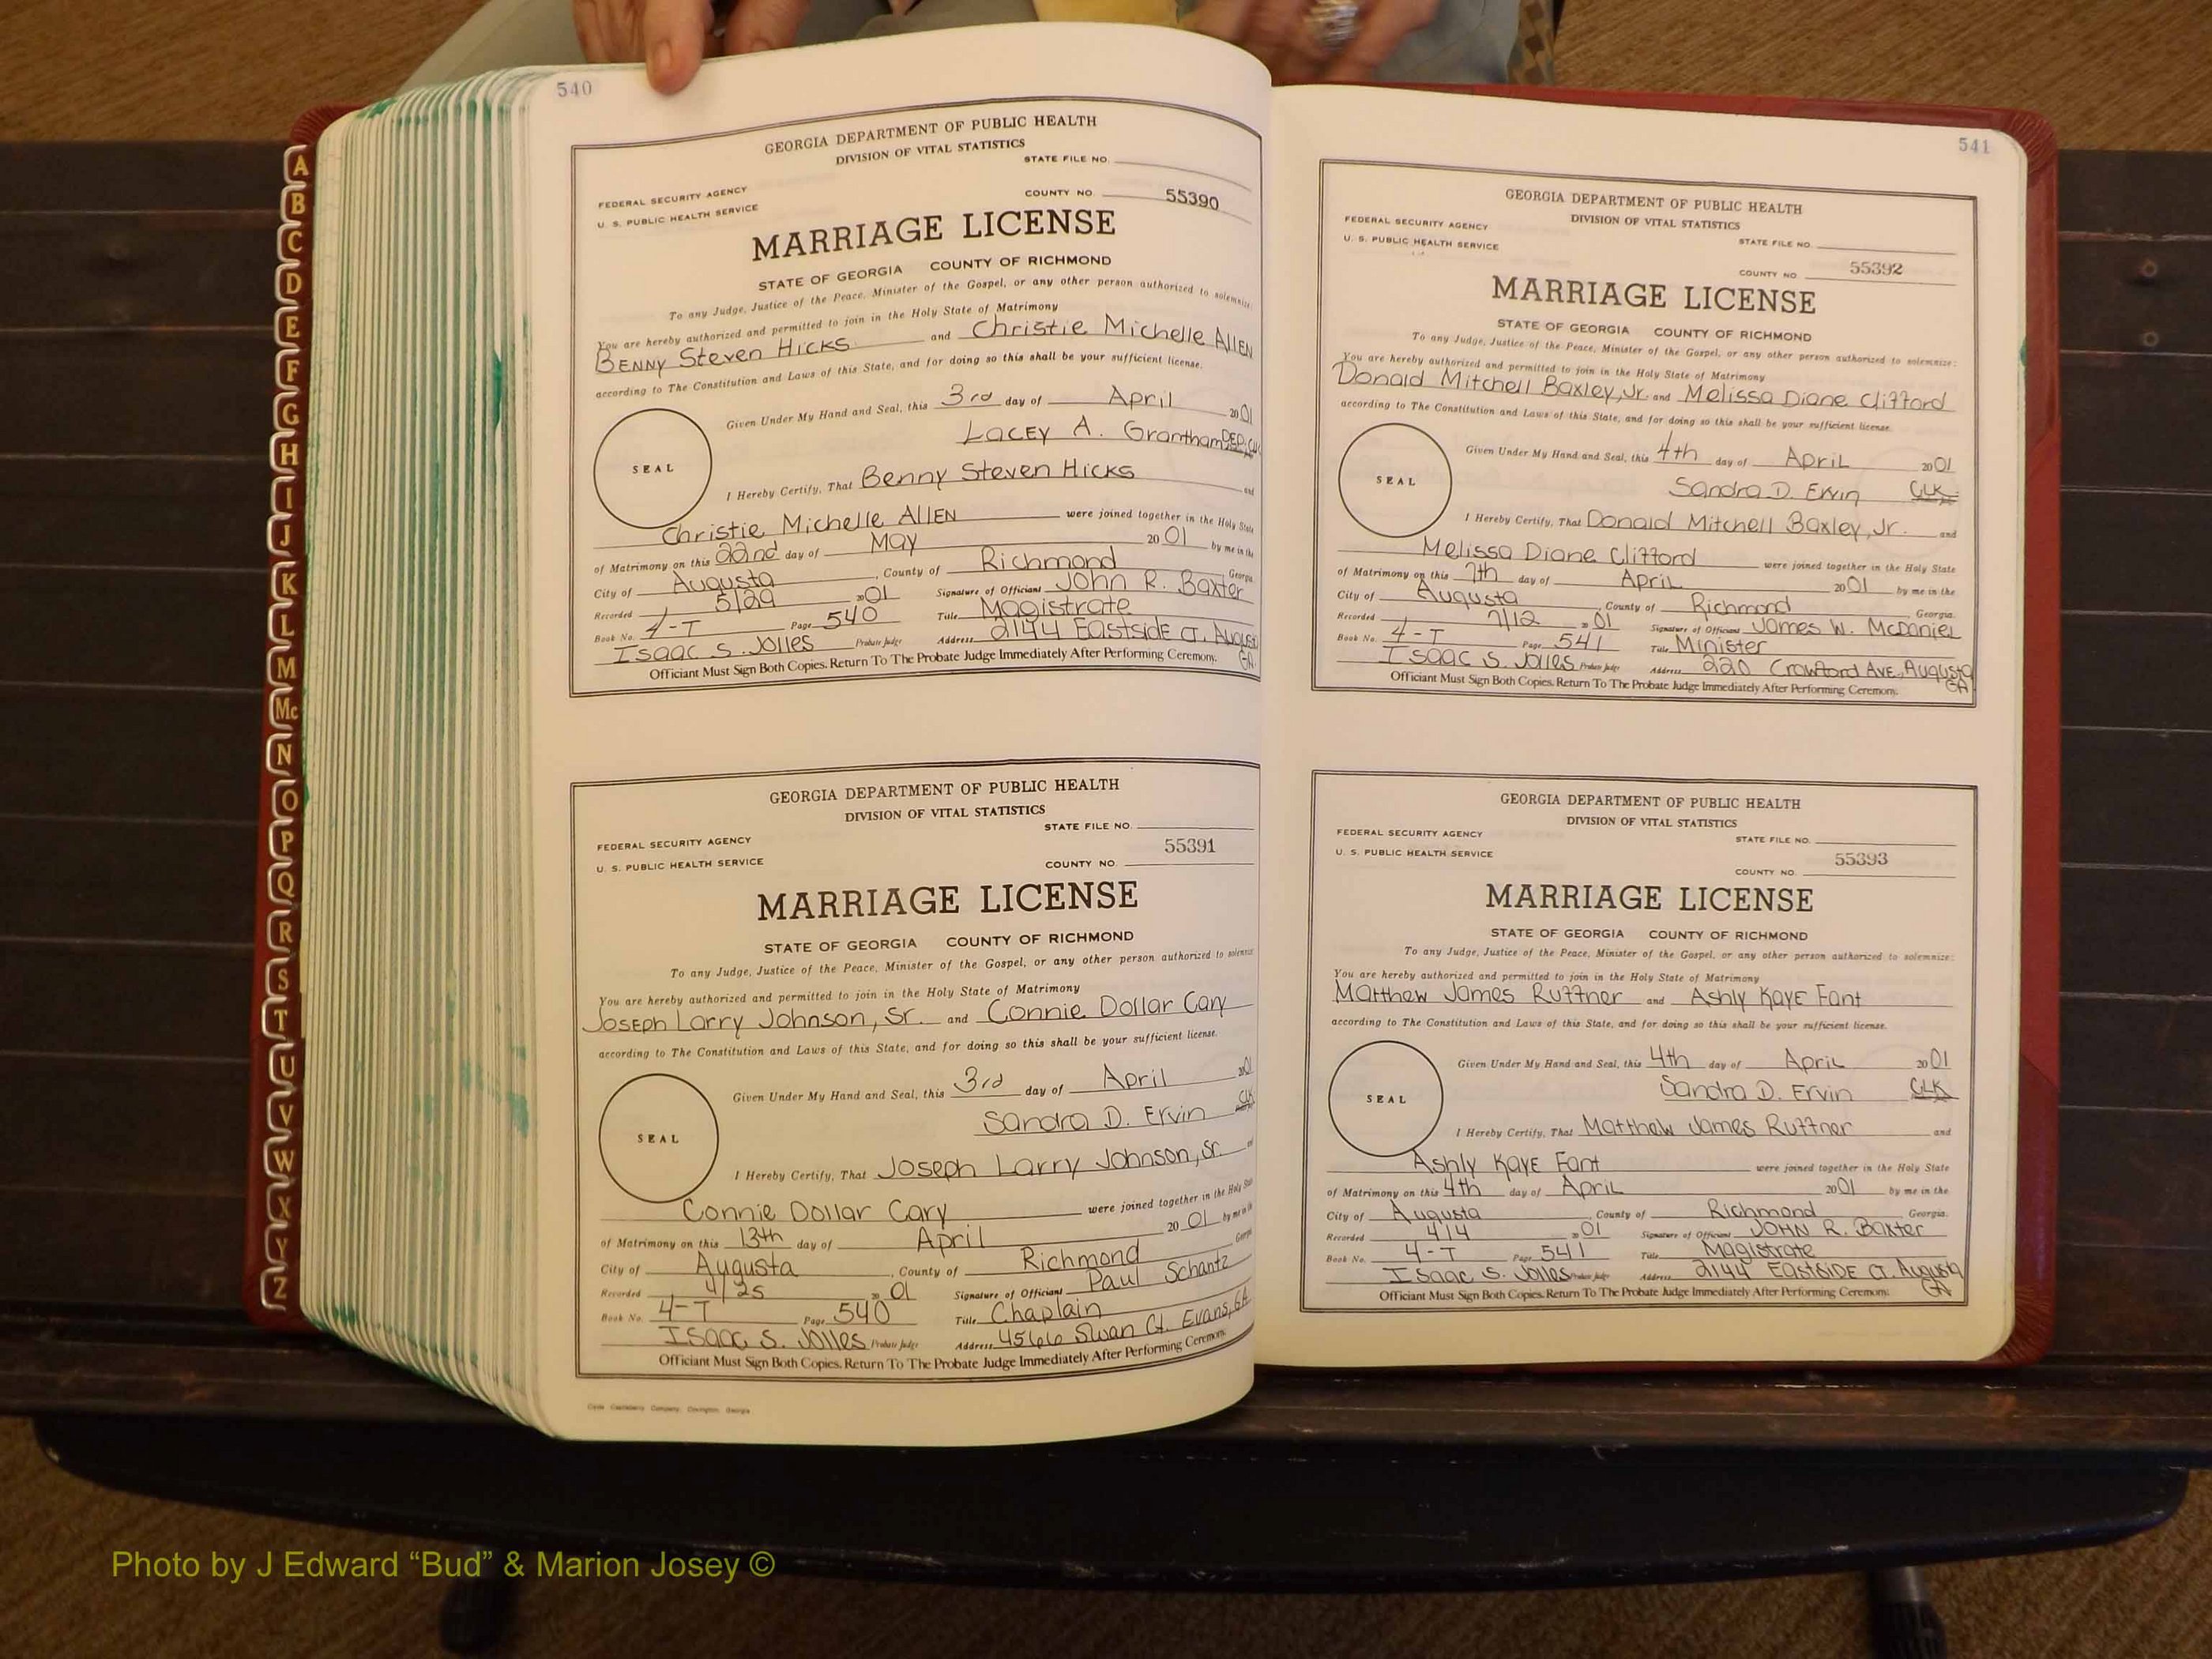 A
B
C
D
E
F
G
H
I
J
K
L
M
Mc
N
O
P
Q
R
S
T
U
V
W
X
Y
Z
540
GEORGIA DEPARTMENT OF PUBLIC HEALTH
DIVISION OF VITAL STATISTICS
STATE FILE NO.
FEDERAL SECURITY AGENCY
COUNTY NO. 55390
U. S. PUBLIC HEALTH SERVICE
MARRIAGE LICENSE
STATE OF GEORGIA COUNTY OF RICHMOND
To any Judge, Justice of the Peace, Minister of the Gospel, or any other person authorized to solemnize:
You are hereby authorized and permitted to join in the Holy State of Matrimony
Benny Steven Hicks and Christie Michelle Allen
according to The Constitution and Laws of this State, and for doing so this shall be your sufficient license.
Given Under My Hand and Seal, this 3rd day of April 2001
Lacey A. Grantham Dep. Clk
SEAL
I Hereby Certify, That Benny Steven Hicks and
Christie Michelle Allen were joined together in the Holy State
of Matrimony on this 22nd day of May 2001 by me in the
City of Augusta, County of Richmond Georgia.
Recorded 5/29 2001 Signature of Officiant John R. Baxter
Book No. 4-T Page 540 Title Magistrate
Isaac S. Jolles Probate Judge Address 2144 Eastside Ct. Augusta GA.
Officiant Must Sign Both Copies. Return To The Probate Judge Immediately After Performing Ceremony.
GEORGIA DEPARTMENT OF PUBLIC HEALTH
DIVISION OF VITAL STATISTICS
STATE FILE NO.
FEDERAL SECURITY AGENCY
55391
U. S. PUBLIC HEALTH SERVICE COUNTY NO.
MARRIAGE LICENSE
STATE OF GEORGIA COUNTY OF RICHMOND
To any Judge, Justice of the Peace, Minister of the Gospel, or any other person authorized to solemnize:
You are hereby authorized and permitted to join in the Holy State of Matrimony
Joseph Larry Johnson, Sr. and Connie Dollar Cary
according to The Constitution and Laws of this State, and for doing so this shall be your sufficient license.
Given Under My Hand and Seal, this 3rd day of April 2001
Sandra D. Ervin CLK
SEAL
I Hereby Certify, That Joseph Larry Johnson, Sr. and
Connie Dollar Cary were joined together in the Holy State
of Matrimony on this 13th day of April 2001 by me in the
City of Augusta, County of Richmond Georgia
Recorded 4/25 2001 Signature of Officiant Paul Schantz
Book No. 4-T Page 540 Title Chaplain
Isaac S. Jolles Probate Judge Address 4566 Swan Ct. Evans, GA
Officiant Must Sign Both Copies. Return To The Probate Judge Immediately After Performing Ceremony.
541
GEORGIA DEPARTMENT OF PUBLIC HEALTH
DIVISION OF VITAL STATISTICS
FEDERAL SECURITY AGENCY
STATE FILE NO.
U. S. PUBLIC HEALTH SERVICE
COUNTY NO 55392
MARRIAGE LICENSE
STATE OF GEORGIA COUNTY OF RICHMOND
To any Judge, Justice of the Peace, Minister of the Gospel, or any other person authorized to solemnize:
You are hereby authorized and permitted to join in the Holy State of Matrimony
Donald Mitchell Baxley, Jr. and Melissa Diane Clifford
according to The Constitution and Laws of this State, and for doing so this shall be your sufficient license.
Given Under My Hand and Seal, this 4th day of April 2001
Sandra D. Ervin CLK
SEAL
I Hereby Certify, That Donald Mitchell Baxley, Jr. and
Melissa Diane Clifford were joined together in the Holy State
of Matrimony on this 7th day of April 2001 by me in the
City of Augusta, County of Richmond, Georgia.
Recorded 7/12 2001 Signature of Officiant James W. McDaniel
Book No. 4-T Page 541 Title Minister
Isaac S. Jolles Probate Judge Address 220 Crawford Ave., Augusta GA
Officiant Must Sign Both Copies. Return To The Probate Judge Immediately After Performing Ceremony.
GEORGIA DEPARTMENT OF PUBLIC HEALTH
DIVISION OF VITAL STATISTICS
FEDERAL SECURITY AGENCY
STATE FILE NO.
U. S. PUBLIC HEALTH SERVICE
55393
COUNTY NO.
MARRIAGE LICENSE
STATE OF GEORGIA COUNTY OF RICHMOND
To any Judge, Justice of the Peace, Minister of the Gospel, or any other person authorized to solemnize:
You are hereby authorized and permitted to join in the Holy State of Matrimony
Matthew James Ruffner and Ashly Kaye Fant
according to The Constitution and Laws of this State, and for doing so this shall be your sufficient license.
Given Under My Hand and Seal, this 4th day of April 2001
Sandra D. Ervin CLK
SEAL
I Hereby Certify, That Matthew James Ruffner and
Ashly Kaye Fant were joined together in the Holy State
of Matrimony on this 4th day of April 2001 by me in the
City of Augusta, County of Richmond Georgia.
Recorded 4/4 2001 Signature of Officiant John R. Baxter
Book No. 4-T Page 541 Title Magistrate
Isaac S. Jolles Probate Judge Address 2144 Eastside Ct. Augusta GA
Officiant Must Sign Both Copies. Return To The Probate Judge Immediately After Performing Ceremony.
Photo by J Edward “Bud” & Marion Josey ©